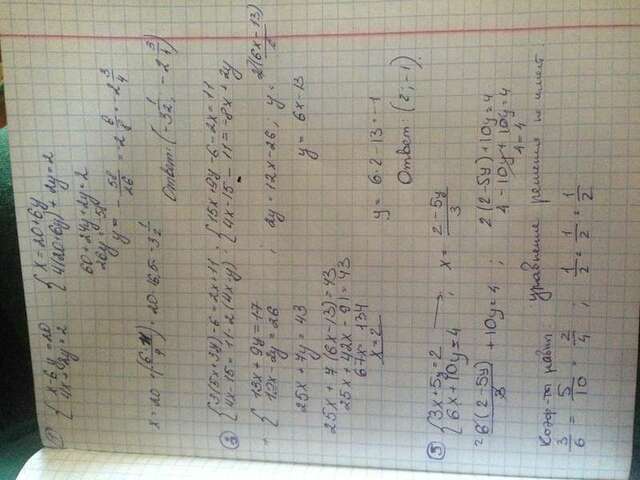 ① { x-6y=20 { x=20+6y
4x+2y=2 4(20+6y)+2y=2
60+24y+2y=2
26y=-58
y= -58/26 = -2 6/8 = -2 3/4
x=20+(6·11/4)=20-16,5=-3 1/2 Ответ: (-3 1/2, -2 3/4)
② { 3(5x+3y)-6=2x+11 ; { 15x+9y-6-2x=11
4x-15=11-2(4x-y) 4x-15-11=-8x+2y
{ 13x+9y=17
12x-2y=26 ; 2y=12x-26; y=2(6x-13)/2
25x+7y=43 y=6x-13
25x+7(6x-13)=43
25x+42x-91=43
67x=134
x=2 y=6·2-13=-1
Ответ: (2;-1)
③ { 3x+5y=2 → ; x=2-5y/3
6x+10y=4
6(2-5y)/3+10y=4 ; 2(2-5y)+10y=4
4-10y+10y=4
4=4
Коэф-ты равны. уравнение решения не имеет.
3/6=5/10=2/4 ; 1/2=1/2=1/2